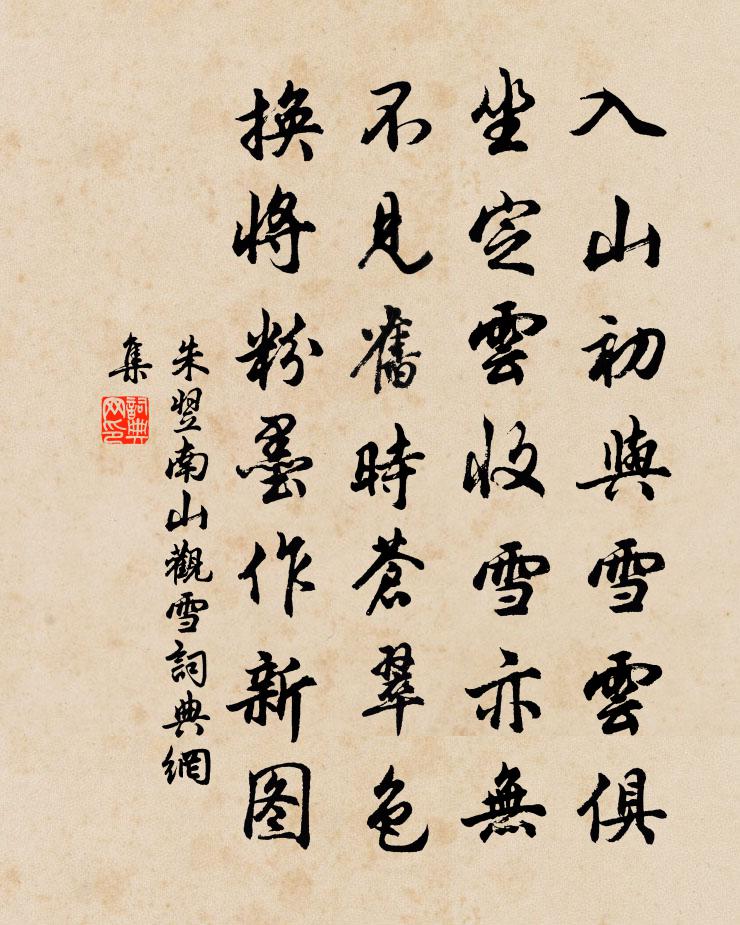 入山初與雪雲俱
坐定雲收雪亦無
不見舊時蒼翠色
換將粉墨作新图
朱翌南山觀雪詞典網
集
詞典
网印